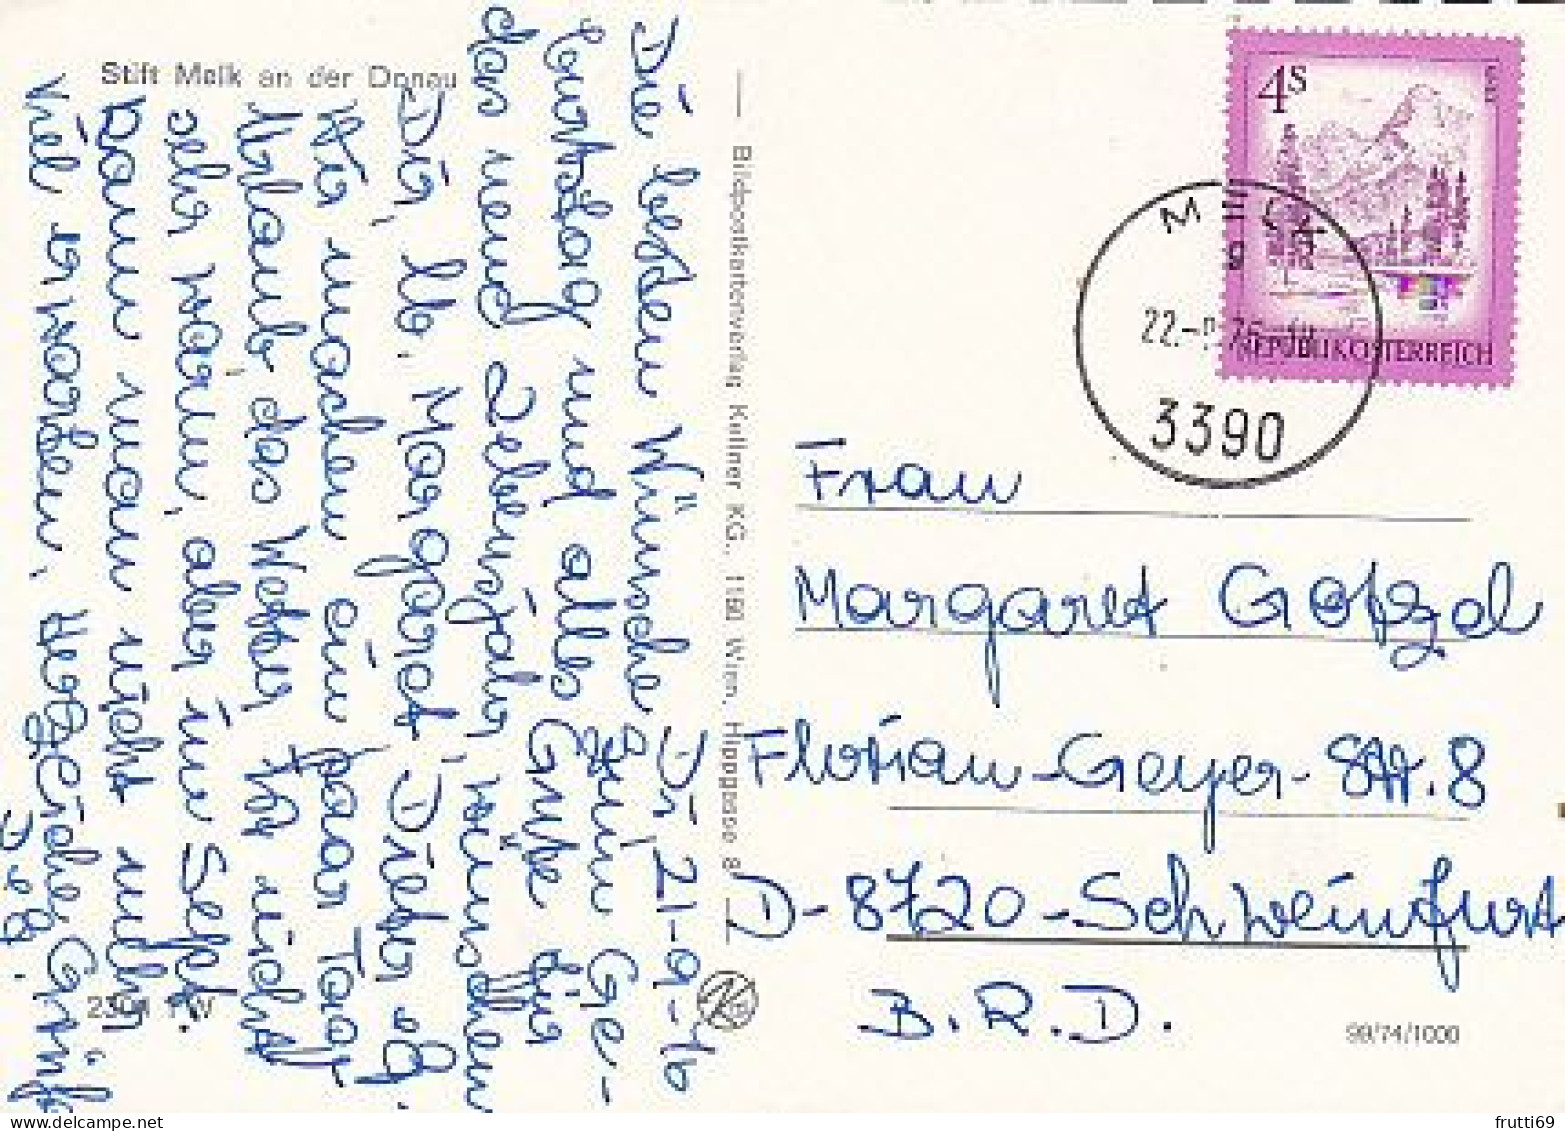 Stift Melk an der Donau
Di, 21-9-76
Die besten Wünsche zum Ge-
burtstag und alles Gute für
das neue Lebensjahr, wünschen
Dir, lb. Margaret, Dieter
Wir machen ein paar Tage
Urlaub, das Wetter ist nicht
sehr warm, aber im
kann man nicht
viel erwarten. Herzliche Grüße
Bildpostkartenverlag Kellner KG., 1160 Wien, Hippgasse 8
4S
REPUBLIK ÖSTERREICH
MELK
g
22.-9.76-
3390
Frau
Margaret Götzel
Florian-Geyer-Str. 8
D-8720-Schweinfurt
B.R.D.
99/74/1000
frutti69